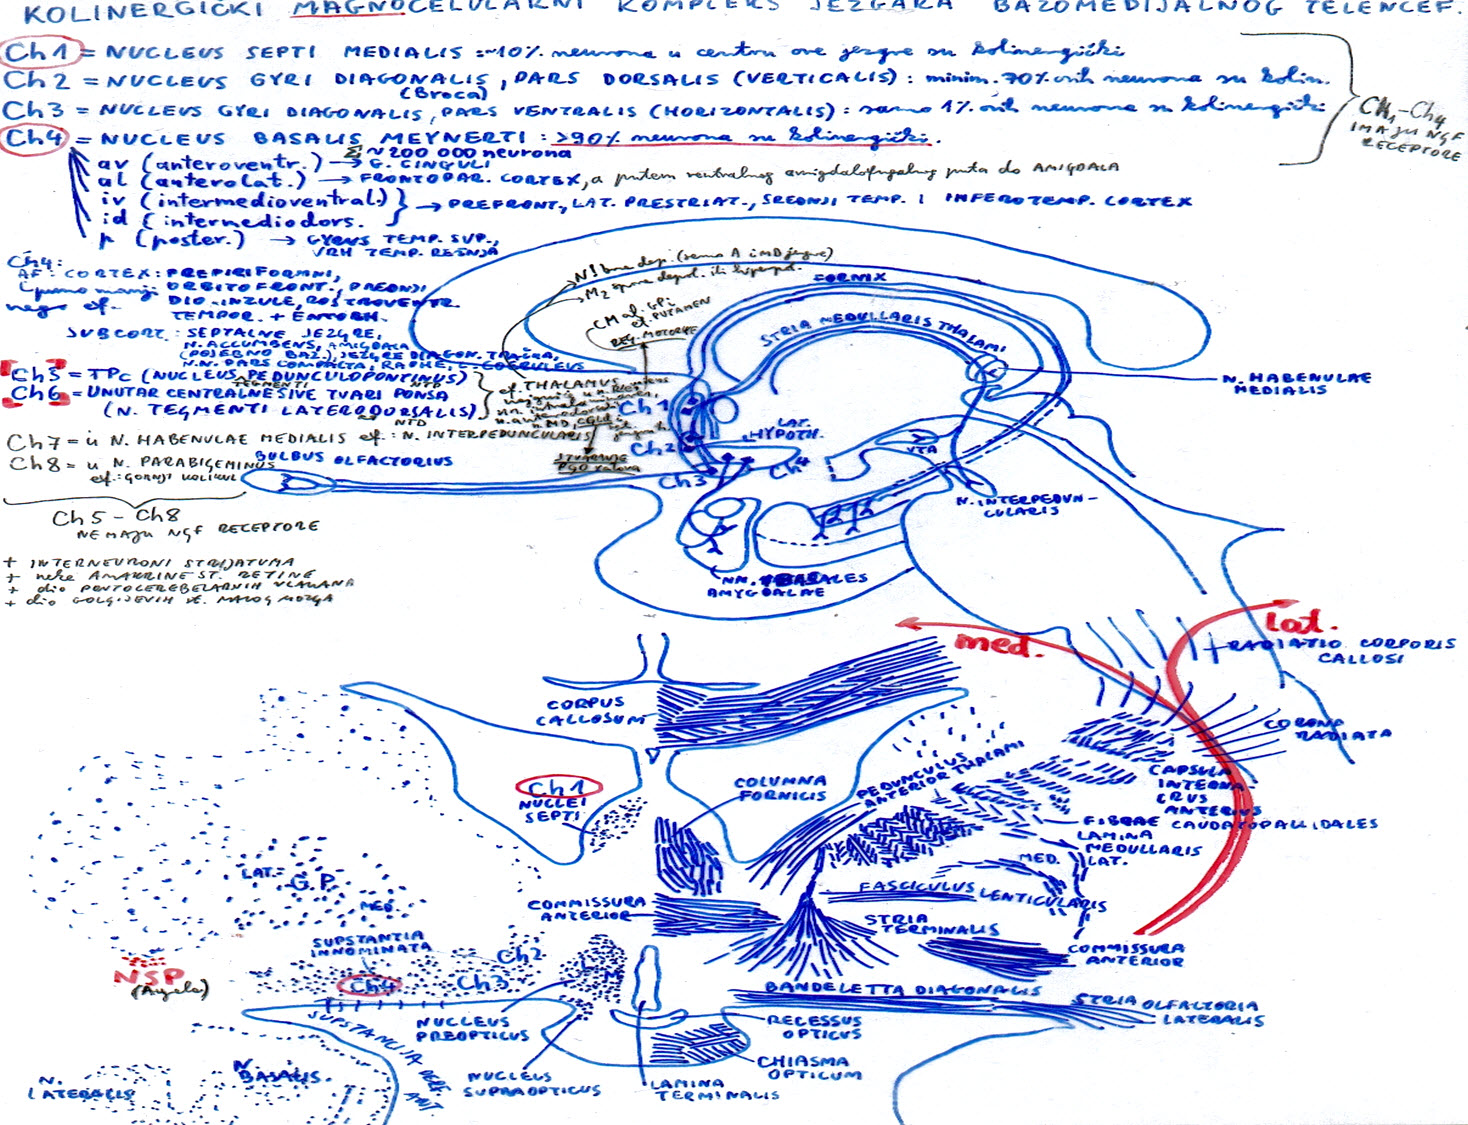 KOLINERGIČKI MAGNOCELULARNI KOMPLEKS JEZGARA BAZOMEDIJALNOG TELENCEF.
Ch1 = NUCLEUS SEPTI MEDIALIS :~10% neurona u centru ove jezgre su kolinergički
Ch2 = NUCLEUS GYRI DIAGONALIS, PARS DORSALIS (VERTICALIS): minim. 70% ovih neurona su kolin.
(Broca)
Ch3 = NUCLEUS GYRI DIAGONALIS, PARS VENTRALIS (HORIZONTALIS): samo 1% ovih neurona su kolinergički
Ch4 = NUCLEUS BASALIS MEYNERTI : >90% neurona su kolinergički.
Ch1-Ch4
IMAJU NGF
RECEPTORE
Σ ~ 200 000 neurona
av (anteroventr.) → G. CINGULI
al (anterolat.) → FRONTOPAR. CORTEX, a putem ventralnog amigdalofugalnog puta do AMIGDALA
iv (intermedioventral.)
id (intermediodors.
} → PREFRONT., LAT. PRESTRIAT., SREDNJI TEMP. I INFEROTEMP. CORTEX
p (poster.) → GYRUS TEMP. SUP.,
VRH TEMP. REŽNJA
Ch4:
AF: CORTEX: PREPIRIFORMNI,
(puno manji ORBITOFRONT., PREDNJI
nego ef. DIO INZULE, ROSTROVENTR.
TEMPOR. + ENTORH.
SUBCORT.: SEPTALNE JEZGRE,
N. ACCUMBENS, AMIGDALA
(POSEBNO BAZ.), JEZGRE DIAGON. TRAČKA,
N.N. PARS COMPACTA, RAPHE, L. COERULEUS
Ch5 = TPC (NUCLEUS PEDUNCULOPONTINUS)
TEGMENTI NTD
Ch6 = UNUTAR CENTRALNE SIVE TVARI PONSA
(N. TEGMENTI LATERODORSALIS)
NTD
ef. THALAMUS
Ch7 = u N. HABENULAE MEDIALIS ef.: N. INTERPEDUNCULARIS
Ch8 = u N. PARABIGEMINUS
ef.: GORNJI KOLIKUL
Ch5 - Ch8
NEMAJU NGF RECEPTORE
+ INTERNEURONI STRIJATUMA
+ neke AMAKRINE ST. RETINE
+ dio PONTOCEREBELARNIH VLAKANA
+ dio GOLGIJEVIH ST. MALOG MOZGA
(samo A i MD jezgre)
M2
CM af. GPi
ef. PUTAMEN
REG. MOTORIKE
STVARANJE
PGO valova
FORNIX
STRIA MEDULLARIS THALAMI
N. HABENULAE
MEDIALIS
Ch1
LAT.
HYPOTH.
Ch2
Ch3
Ch4
VTA
BULBUS OLFACTORIUS
N. INTERPEDUN-
CULARIS
NN. BASALES
AMYGDALAE
med.
lat.
RADIATIO CORPORIS
CALLOSI
CORONA
RADIATA
CORPUS
CALLOSUM
Ch1
NUCLEI
SEPTI
COLUMNA
FORNICIS
PEDUNCULUS
ANTERIOR THALAMI
CAPSULA
INTERNA
CRUS
ANTERIUS
FIBRAE CAUDATOPALLIDALES
LAMINA
MEDULLARIS
MED.
LAT.
LAT.
G.P.
MED.
FASCICULUS LENTICULARIS
COMMISSURA
ANTERIOR
STRIA
TERMINALIS
COMMISSURA
ANTERIOR
SUPSTANTIA
INNOMINATA
Ch2
NSP
(Ayala)
Ch4
Ch3
L
M
BANDELETTA DIAGONALIS
STRIA OLFACTORIA
LATERALIS
NUCLEUS
PREOPTICUS
RECESSUS
OPTICUS
CHIASMA
OPTICUM
SUPSTANCIJA PERF.
ANT.
N.
LATERALIS
N.
BASALIS
NUCLEUS
SUPRAOPTICUS
LAMINA
TERMINALIS